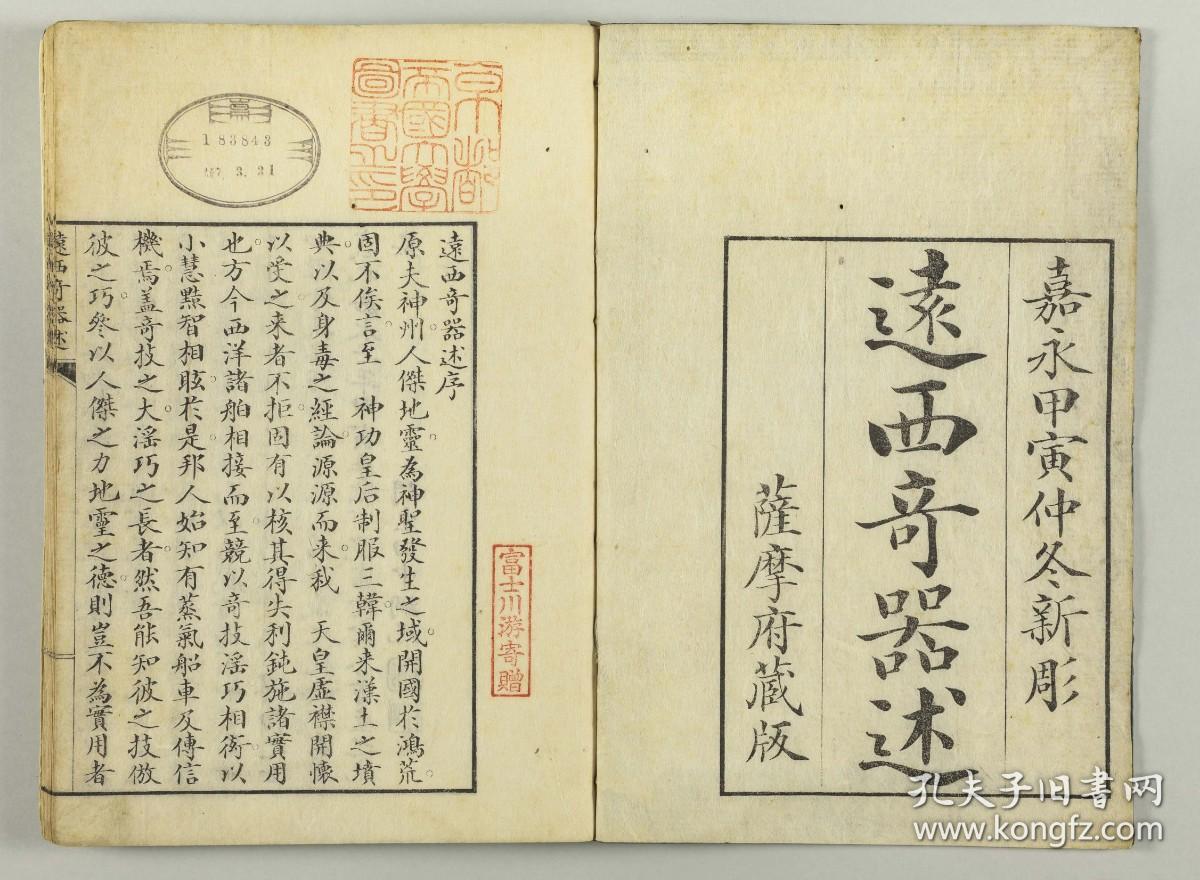 嘉永甲寅仲冬新彫
遠西奇器述
薩摩府蔵版
孔夫子旧书网
www.kongfz.com
京都
帝國大學
圖書之印
183843
3. 31
富士川游寄贈
遠西奇器述序
原夫神州人傑地靈為神聖發生之域開國於鴻荒
固不俟言至 神功皇后制服三韓爾来漢土之墳
典以及身毒之經論源源而来我 天皇虚襟開懐
以受之来者不拒固有以核其得失利鈍施諸實用
也方今西洋諸舶相接而至競以奇技淫巧相衒以
小慧黠智相眩於是邦人始知有蒸氣船車及傳信
機焉盖奇技之大淫巧之長者然吾能知彼之技倣
彼之巧参以人傑之力地靈之德則豈不為實用者
遠西奇器述